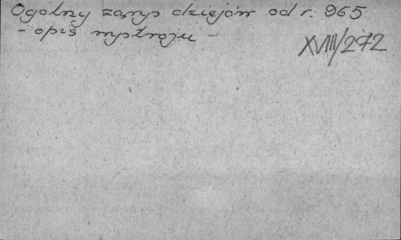 Ogólny zarys dziejów od r. 965
- opis wystroju -
XVIII/272